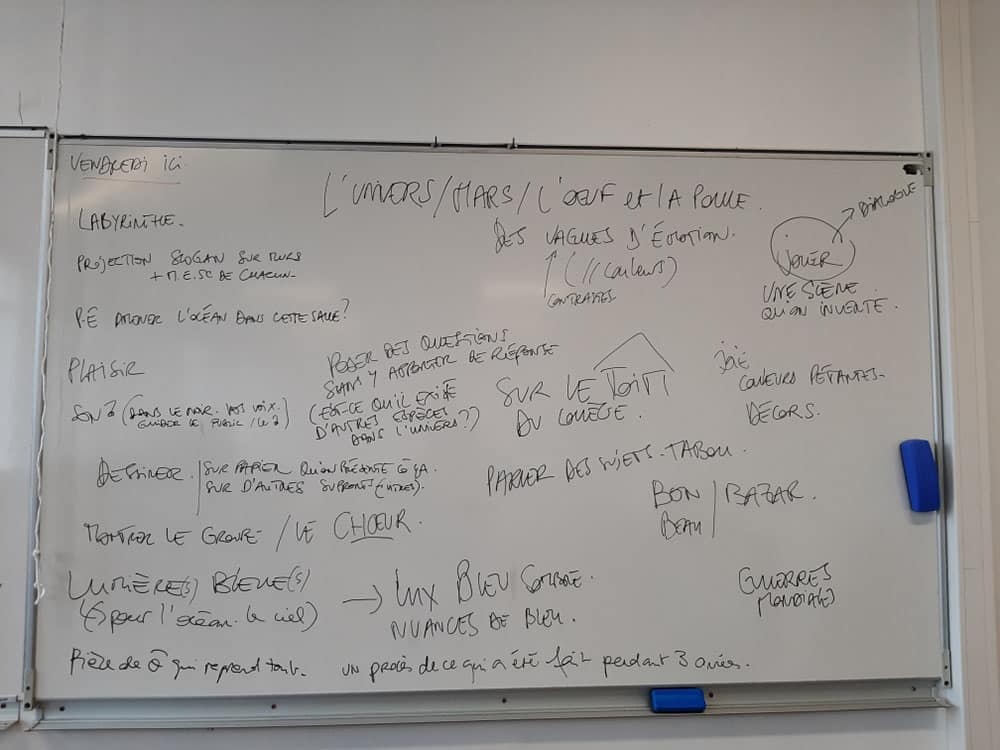 VENDREDI ICI
L'UNIVERS/MARS/L'ŒUF et LA POULE.
LABYRINTHE.
DES VAGUES D'ÉMOTION.
(// couleurs)
CONTRASTES
DIALOGUE
JOUER
UNE SCÈNE
QU'ON INVENTE.
PROJECTION SLOGAN SUR MURS
+ M.E.SC DE CHACUN-
P.E L'OCÉAN DANS CETTE SALLE?
PLAISIR
POSER DES QUESTIONS
SANS Y APPORTER DE RÉPONSE
(EST-CE QU'IL EXISTE
D'AUTRES ESPÈCES
DANS L'UNIVERS?)
SUR LE TOIT
DU COLLÈGE.
JOIE
COULEURS PÉTANTES-
DÉCORS.
SON (DANS LE NOIR. VOS VOIX.
GUIDER LE PUBLIC)
DESSINER. / SUR PAPIER QU'ON PRÉSENTE ÇA
SUR D'AUTRES SUPPORTS (VITRES).
PARLER DES SUJETS-TABOU.
BON / BAZAR.
BEAU
MONTRER LE GROUPE- / LE CHŒUR.
LUMIÈRE(S) BLEUE(S)
(pour l'océan. le ciel)
→ LUX BLEU SOMBRE.
NUANCES DE BLEU.
GUERRES
MONDIALES
Pièce de qui reprend tout. un procès de ce qui a été fait pendant 3 années.